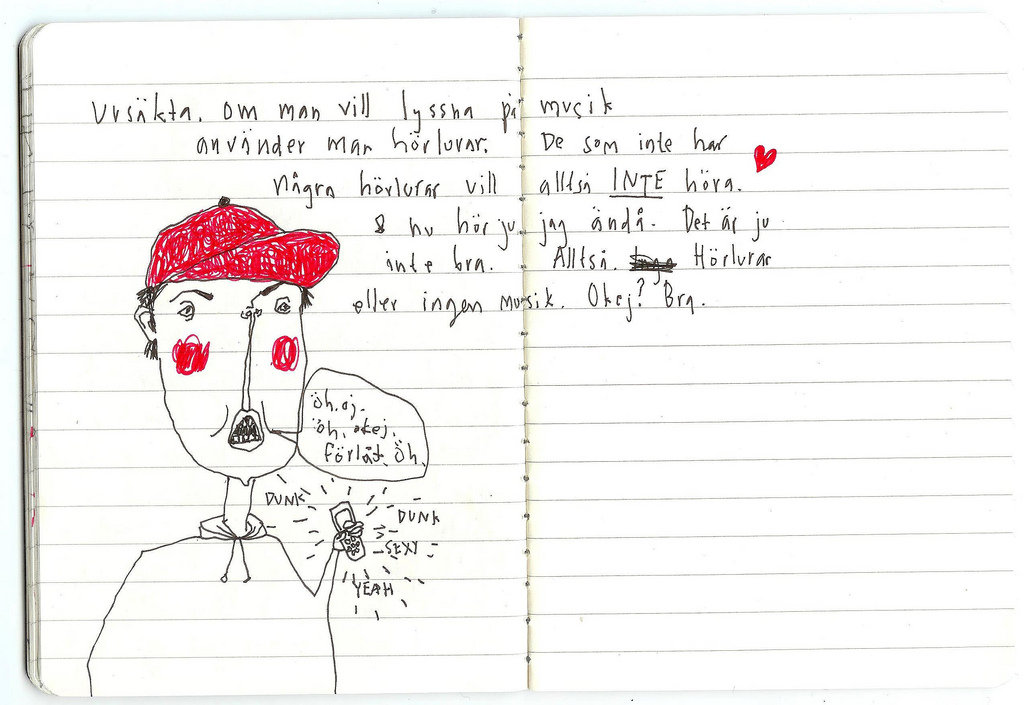 Ursäkta. Om man vill lyssna på musik
använder man hörlurar. De som inte har
några hörlurar vill alltså INTE höra.
& nu hör ju jag ändå. Det är ju
inte bra. Alltså. Hörlurar
eller ingen musik. Okej? Bra.
Öh. oj.
Öh. okej.
förlåt. Öh.
DUNK
DUNK
SEXY
YEAH